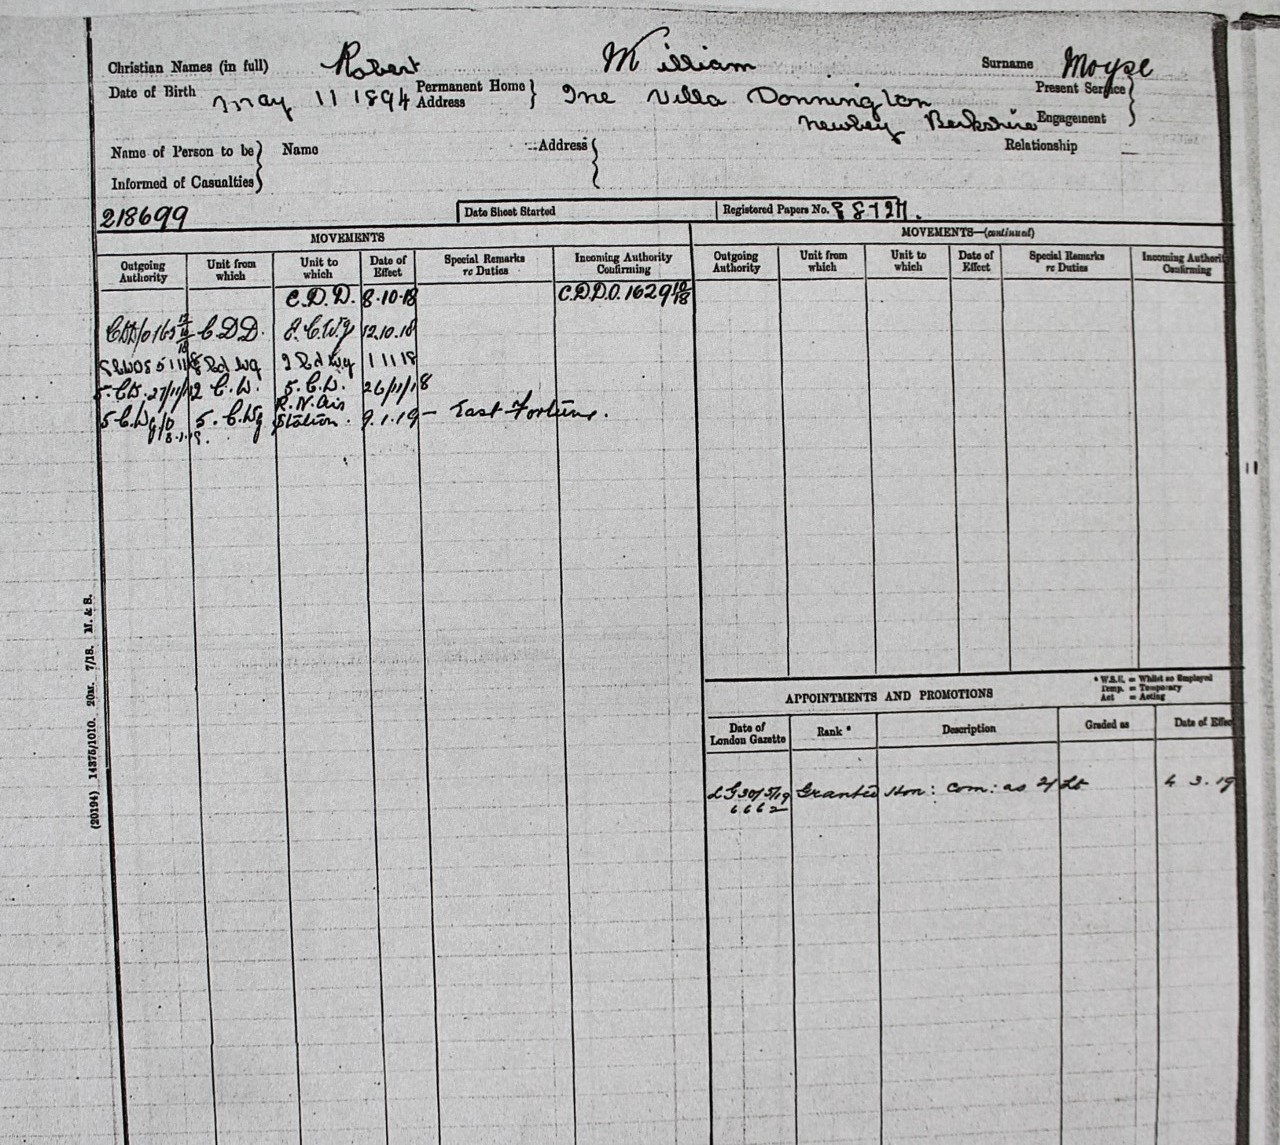 Christian Names (in full) Robert William Surname Moyse
Date of Birth May 11 1894 Permanent Home Address } Ine Villa Donnington Present Service
Newbey Berkshire Engagement }
Name of Person to be Informed of Casualties } Name Address { Relationship
218699 Date Sheet Started Registered Papers No.
MOVEMENTS MOVEMENTS—(continued)
Outgoing Authority Unit from which Unit to which Date of Effect Special Remarks re Duties Incoming Authority Confirming Outgoing Authority Unit from which Unit to which Date of Effect Special Remarks re Duties Incoming Authority Confirming
C.D.D. 8.10.18 C.D.D.O. 1629
C.D.D. 12.10.18
1 11 18
5.C.D. 27/11/ C.W. 26/11/18
R.N. Air
5.C.Wg Station. 9.1.19 — East Fortune.
8.1.19.
11
(20194) 14375/1010. 20M. 7/18. M. & S.
* W.S.E. = Whilst so Employed
Temp. = Temporary
Act = Acting
APPOINTMENTS AND PROMOTIONS
Date of London Gazette Rank * Description Graded as Date of Effec
LG 30/5/19 Granted Hon: Com: as 2/Lt 4 3.19
6662